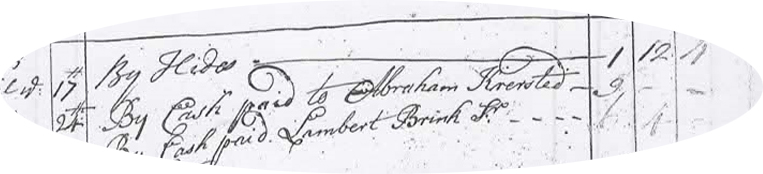 17th By Hides - 1 12 11
24th By Cash paid to Abraham Kiersted - 9 - -
By Cash paid Lambert Brink Sr - - - -